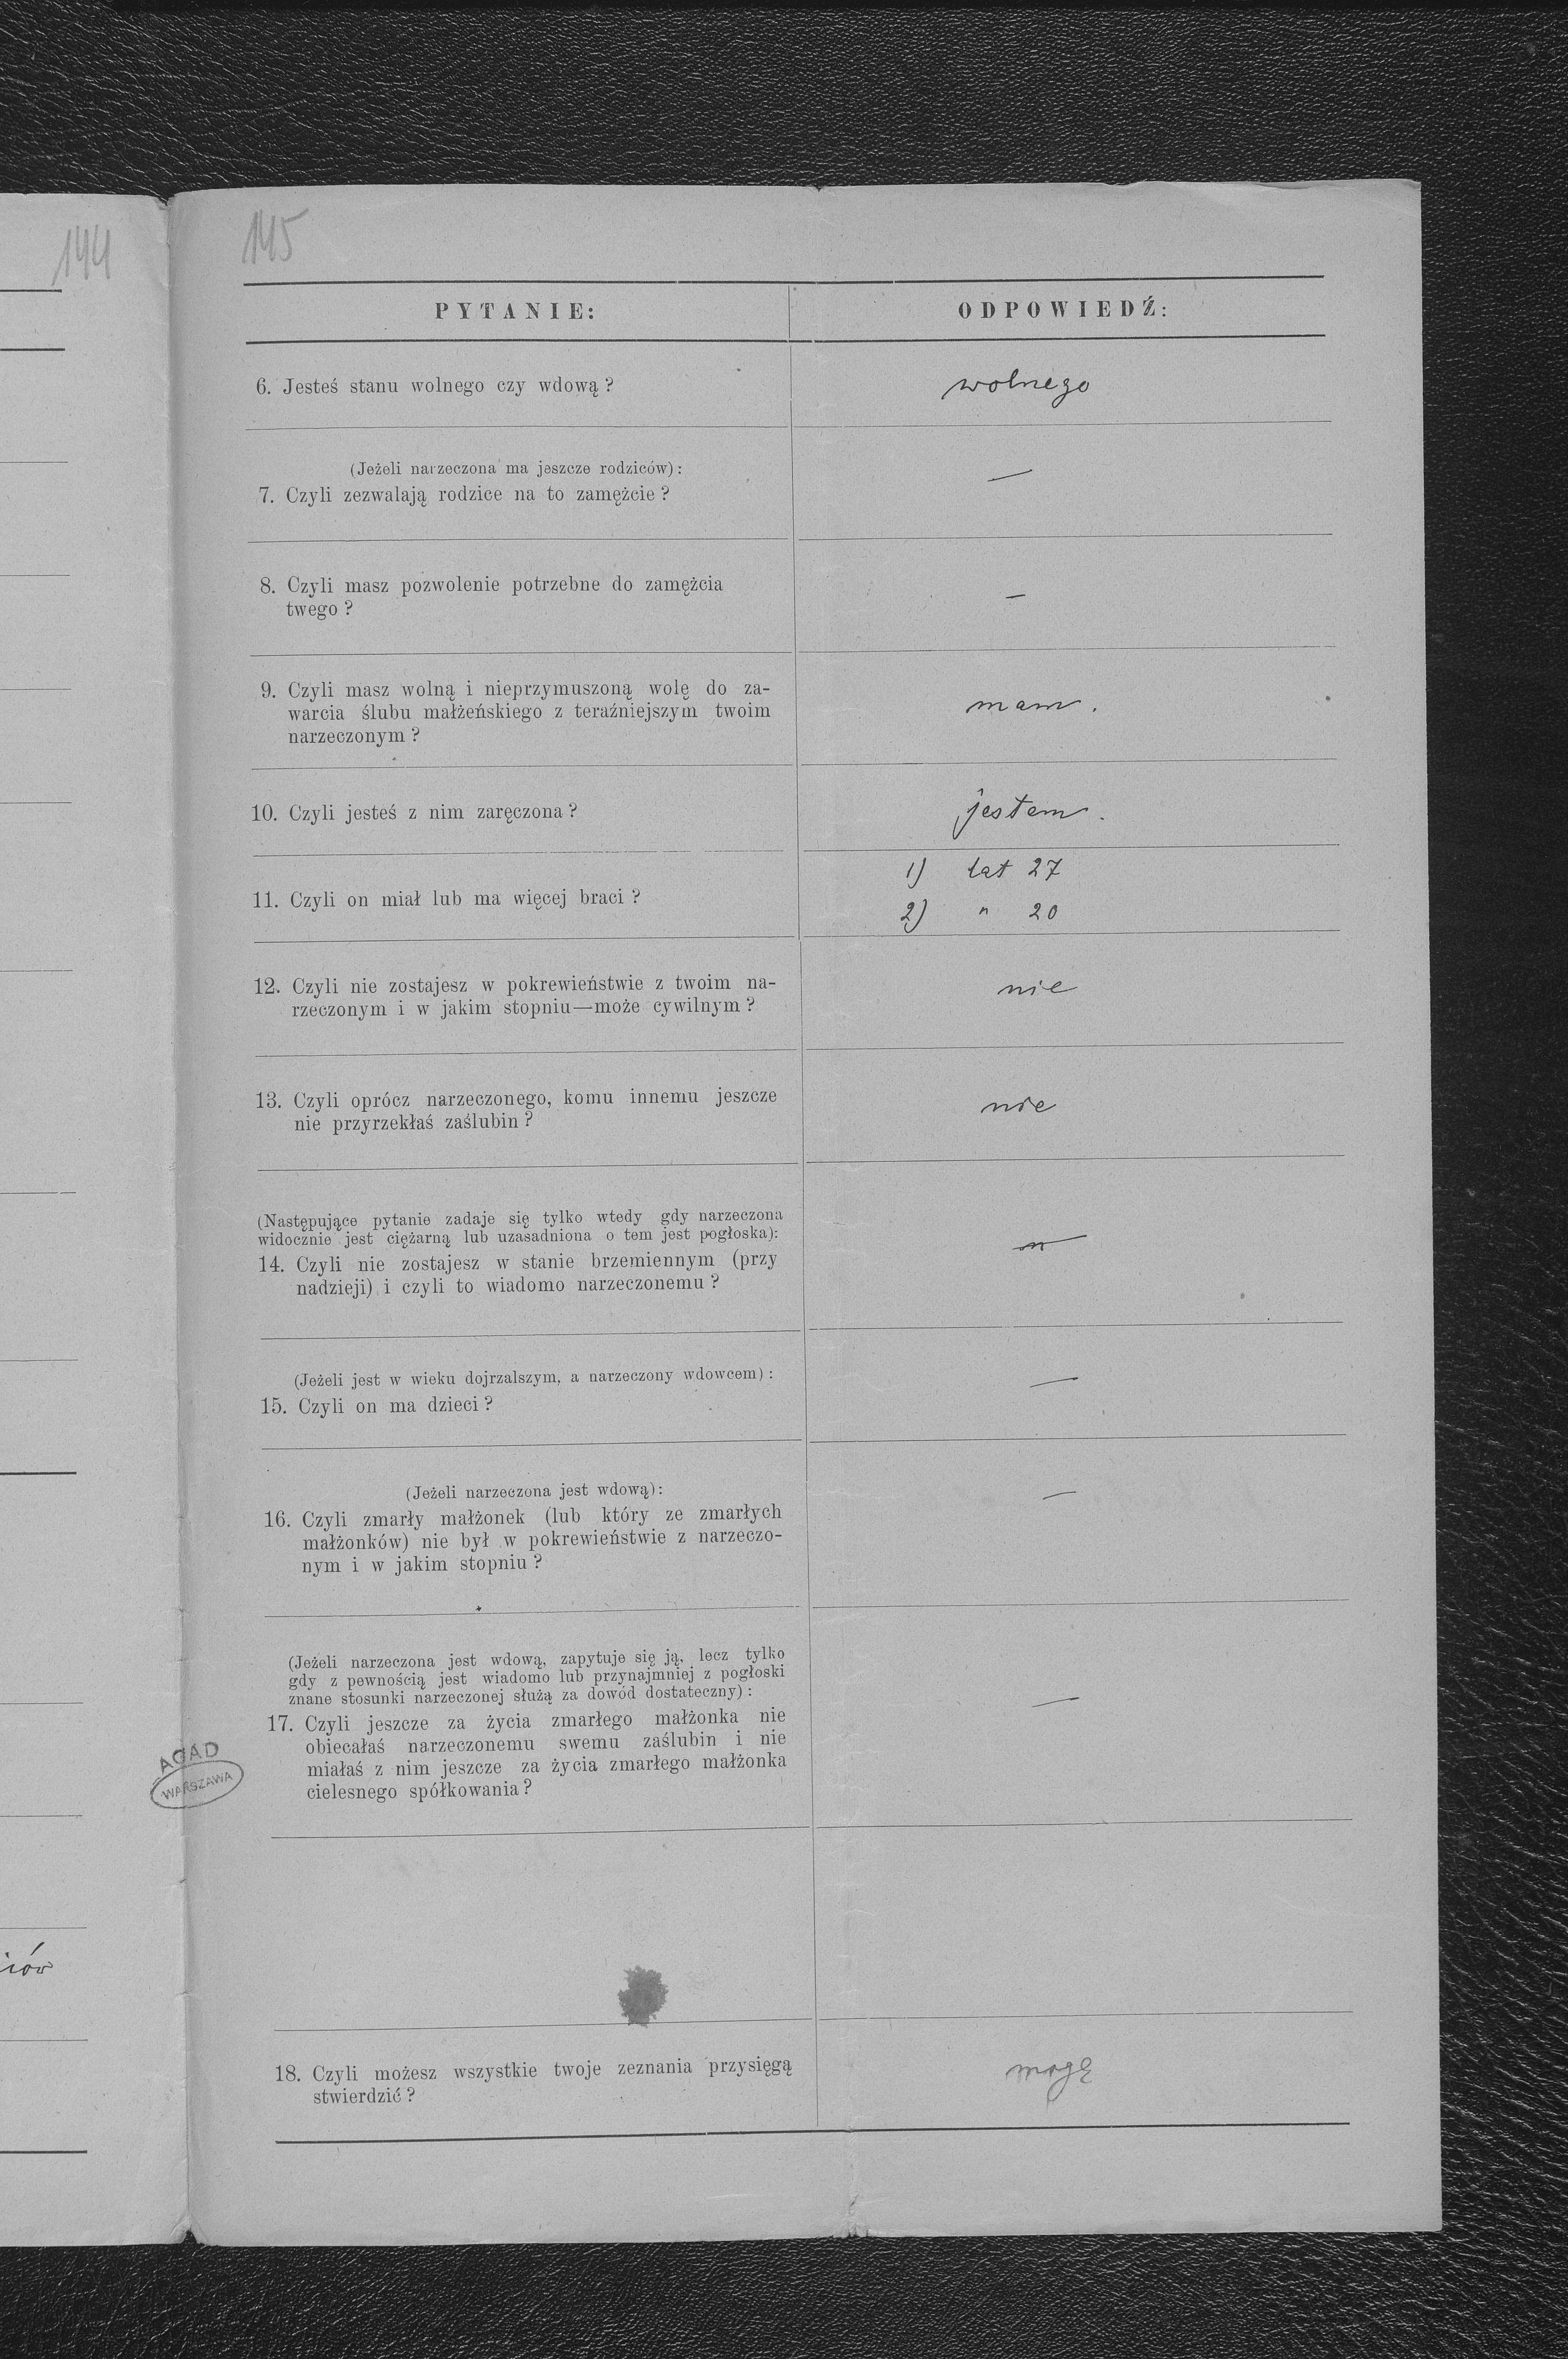 144
145
PYTANIE:
ODPOWIEDŹ:
6. Jesteś stanu wolnego czy wdową?
wolnego
(Jeżeli narzeczona ma jeszcze rodziców):
7. Czyli zezwalają rodzice na to zamężcie?
—
8. Czyli masz pozwolenie potrzebne do zamężcia
twego?
—
9. Czyli masz wolną i nieprzymuszoną wolę do za-
warcia ślubu małżeńskiego z teraźniejszym twoim
narzeczonym?
mam.
10. Czyli jesteś z nim zaręczona?
jestem.
11. Czyli on miał lub ma więcej braci?
1) lat 27
2) " 20
12. Czyli nie zostajesz w pokrewieństwie z twoim na-
rzeczonym i w jakim stopniu—może cywilnym?
nie
13. Czyli oprócz narzeczonego, komu innemu jeszcze
nie przyrzekłaś zaślubin?
nie
(Następujące pytanie zadaje się tylko wtedy gdy narzeczona
widocznie jest ciężarną lub uzasadniona o tem jest pogłoska):
14. Czyli nie zostajesz w stanie brzemiennym (przy
nadzieji) i czyli to wiadomo narzeczonemu?
—
(Jeżeli jest w wieku dojrzalszym, a narzeczony wdowcem):
15. Czyli on ma dzieci?
—
(Jeżeli narzeczona jest wdową):
16. Czyli zmarły małżonek (lub który ze zmarłych
małżonków) nie był w pokrewieństwie z narzeczo-
nym i w jakim stopniu?
—
(Jeżeli narzeczona jest wdową, zapytuje się ją, lecz tylko
gdy z pewnością jest wiadomo lub przynajmniej z pogłoski
znane stosunki narzeczonej służą za dowód dostateczny):
17. Czyli jeszcze za życia zmarłego małżonka nie
obiecałaś narzeczonemu swemu zaślubin i nie
miałaś z nim jeszcze za życia zmarłego małżonka
cielesnego spółkowania?
—
AGAD
WARSZAWA
18. Czyli możesz wszystkie twoje zeznania przysięgą
stwierdzić?
mogę